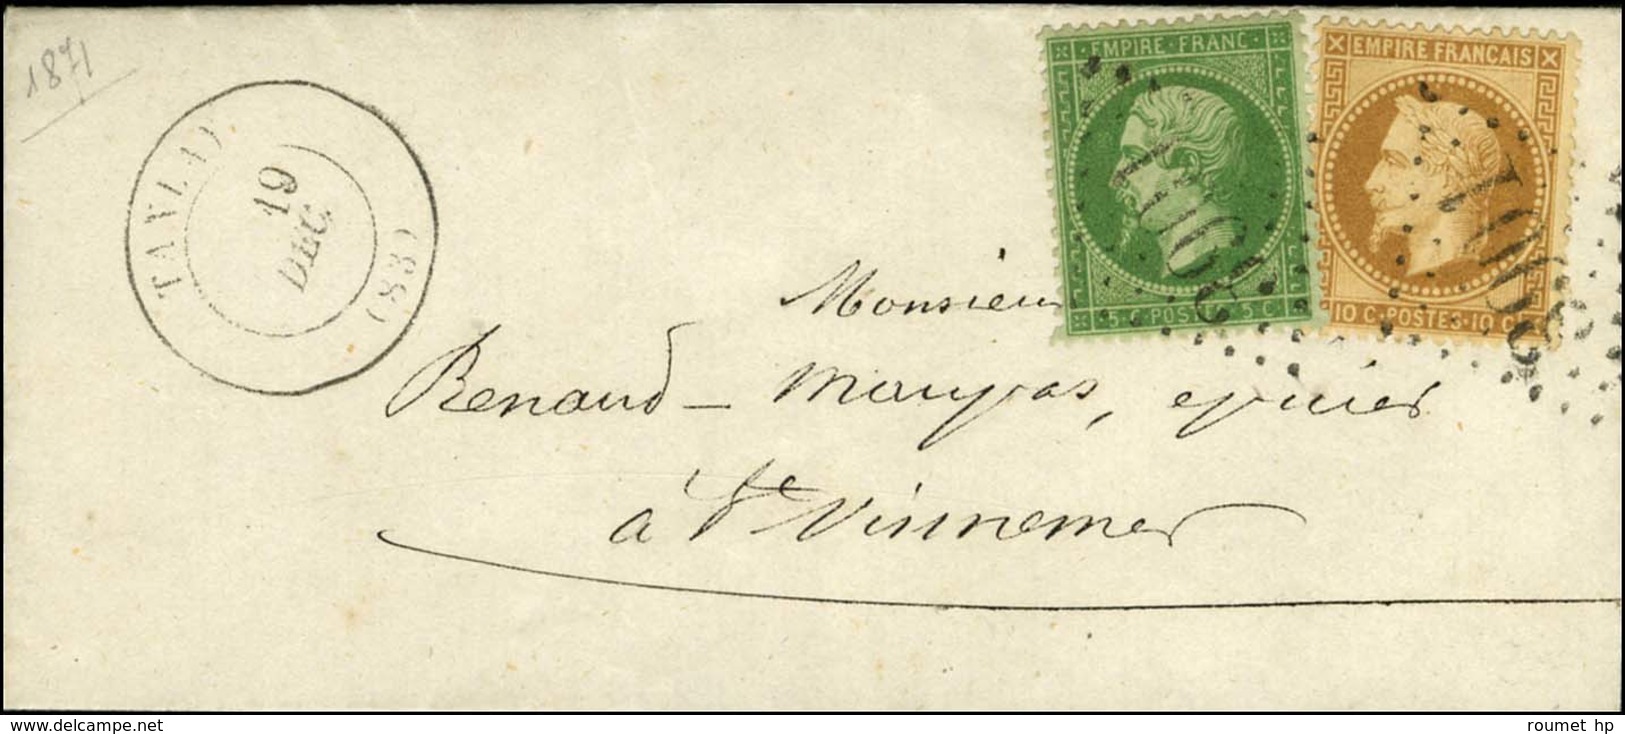 1871
TANLAY
19
DEC.
(88)
EMPIRE · FRANC ·
5 · C · POSTES · 5 C
EMPIRE FRANÇAIS
10 C · POSTES · 10 C
3901
3901
Monsieur
Renaud - Maupas, epicier
à St Vinnemer
www.delcampe.net
roumet hp